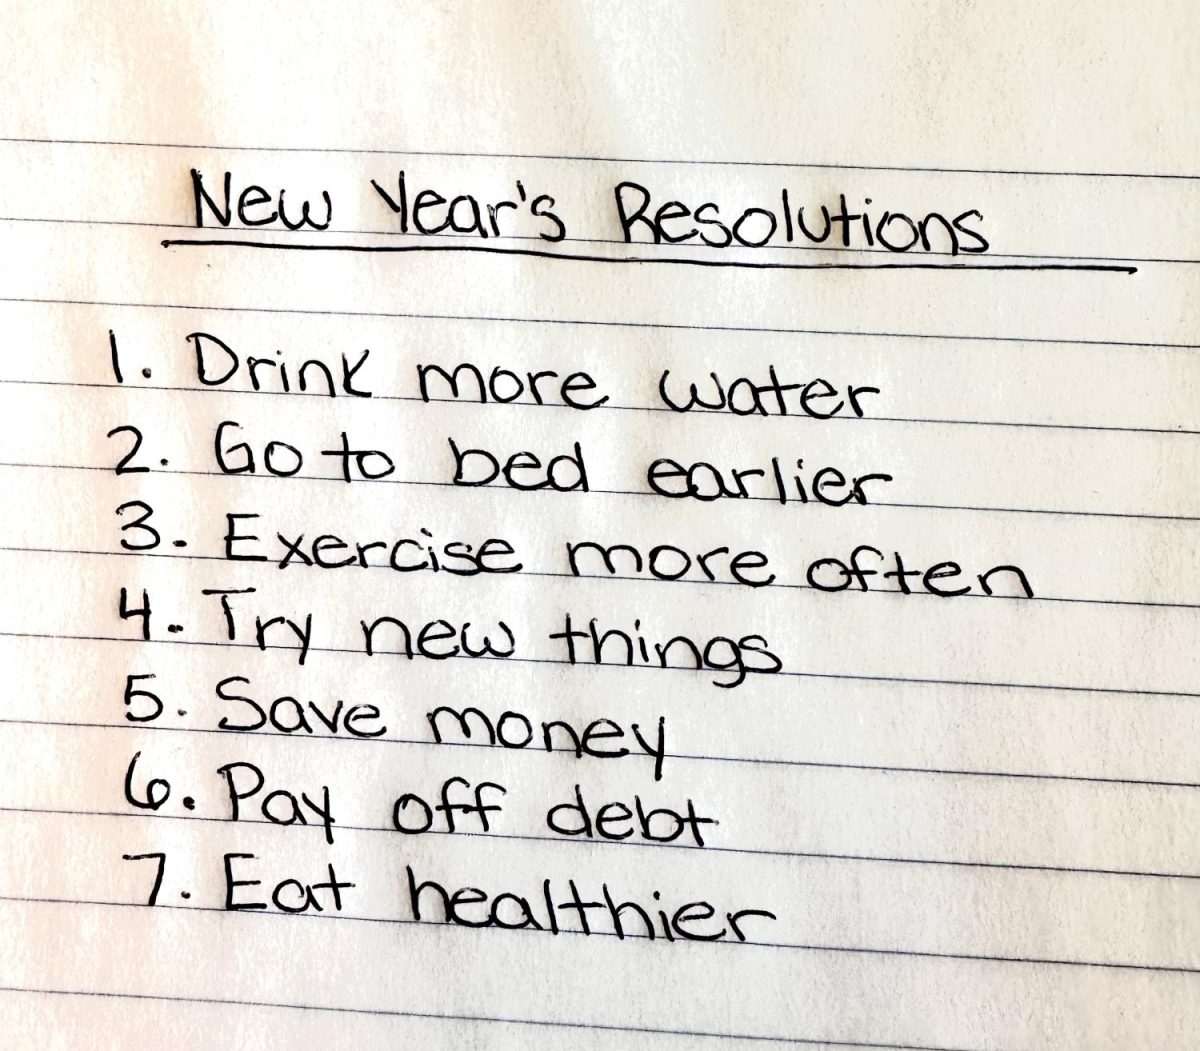 New Year's Resolutions
1. Drink more water
2. Go to bed earlier
3. Exercise more often
4. Try new things
5. Save money
6. Pay off debt
7. Eat healthier